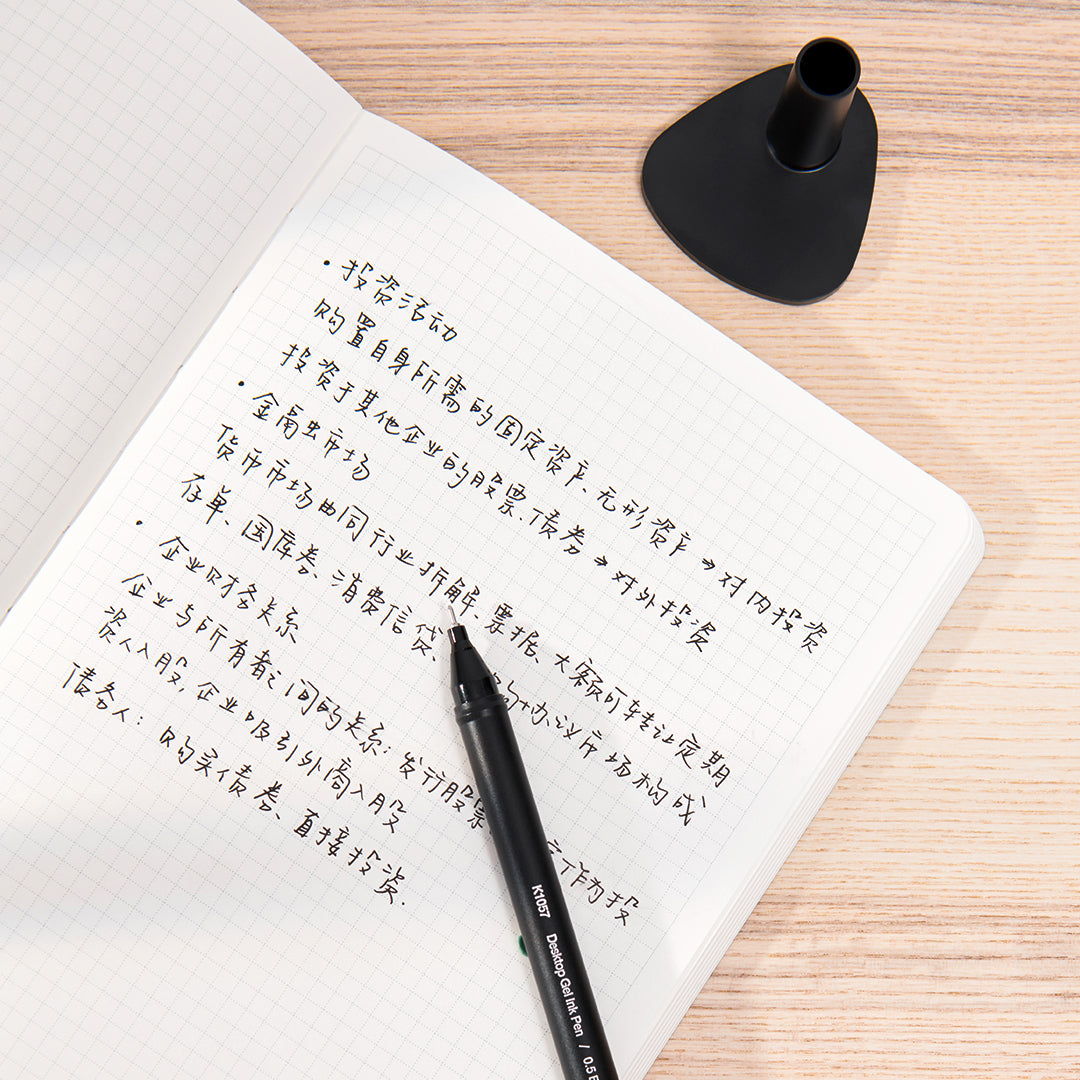 • 投资活动
购置自身所需的固定资产、无形资产→对内投资
投资于其他企业的股票、债券→对外投资
• 金融市场
货币市场由同行业拆解、票据、大额可转让定期
存单、国库券、消费信贷、 协议市场构成
• 企业财务关系
企业与所有者之间的关系：发行股票 作为投
资人入股，企业吸引外商入股
债务人：购买债券、直接投资.
K1057 Desktop Gel Ink Pen / 0.5